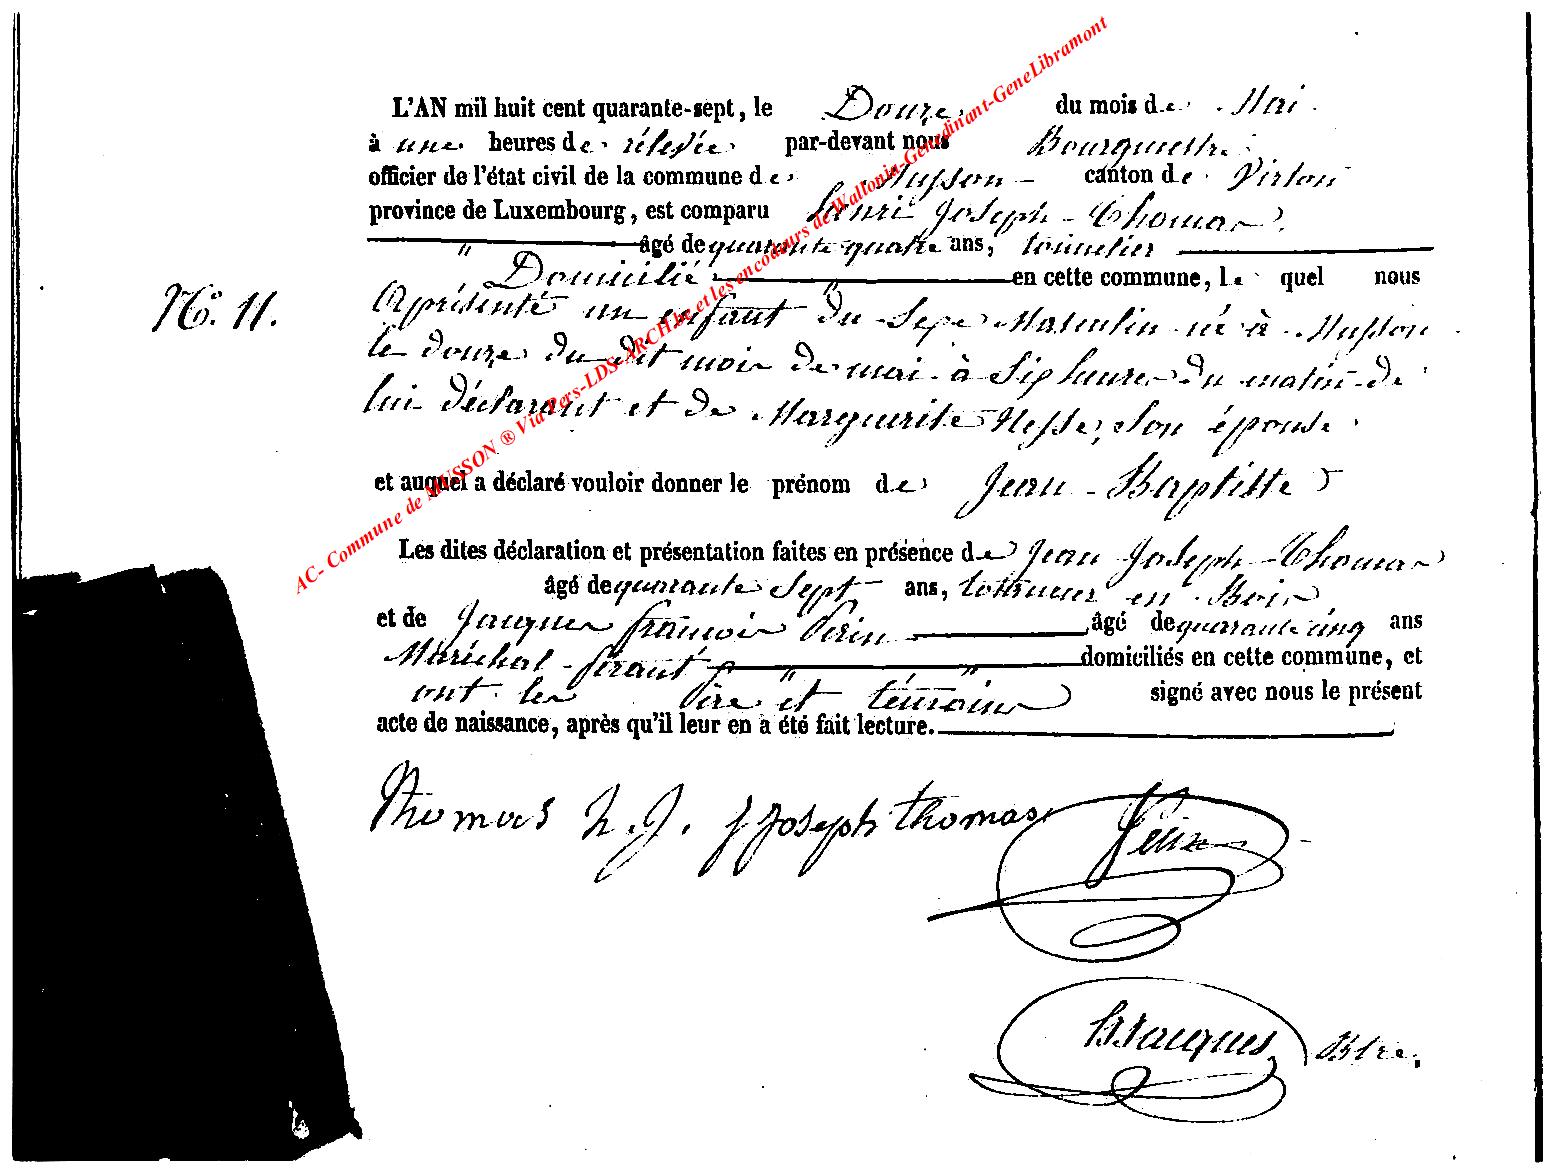 L'AN mil huit cent quarante-sept, le Douze du mois de Mai
à une heures de rélevée par-devant nous Bourguestre
officier de l'état civil de la commune de Musson canton de Virton
province de Luxembourg, est comparu henri Joseph Thomas
âgé de quarante quatre ans, tonnelier
" Domicilié " en cette commune, le quel nous
No. 11.
Aprésenté un enfant du Sexe Masculin né à Musson
le douze du dit mois de mai à Six heures du matin de
lui déclarant et de Marguerite Hesse, Son épouse
et auquel a déclaré vouloir donner le prénom de Jean-Baptiste
Les dites déclaration et présentation faites en présence de Jean Joseph Thomas
âgé de quarante Sept ans, tourneur en Bois
et de Jacques françois Perin âgé de quarante cinq ans
Maréchal-férant " " domiciliés en cette commune, et
ont les Père et témoins signé avec nous le présent
acte de naissance, après qu'il leur en a été fait lecture.
Thomas h. J. J Joseph thomas
Jacques Btre.
AC- Commune de MUSSON ® Via Pers-LDS-ARCH.be et les encodeurs de Wallonia-Genedinant-GeneLibramont